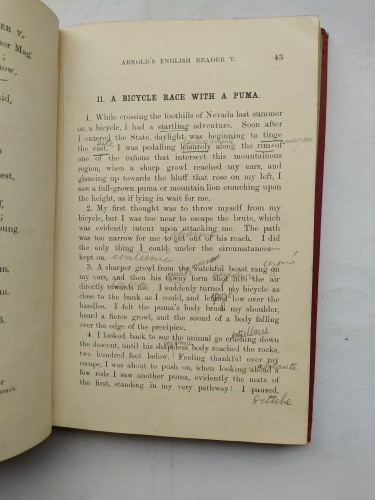 V.
ARNOLD'S ENGLISH READER V. 43
sor Mag
now,
said,
11. A BICYCLE RACE WITH A PUMA.
1. While crossing the foothills of Nevada last summer
on a bicycle, I had a startling adventure. Soon after
I entered the State, daylight was beginning to tinge
the east. I was pedalling leisurely along the rim of
one of the cañons that intersect this mountainous
region, when a sharp growl reached my ears, and
glancing up towards the bluff that rose on my left, I
saw a full-grown puma or mountain lion crouching upon
the height, as if lying in wait for me.
2. My first thought was to throw myself from my
bicycle, but I was too near to escape the brute, which
was evidently intent upon attacking me. The path
was too narrow for me to get out of his reach. I did
the only thing I could under the circumstances—
kept on. continué
3. A sharper growl from the watchful beast rang on
my ears, and then his tawny form shot into the air
directly towards me. I suddenly turned my bicycle as
close to the bank as I could, and leaped low over the
handles. I felt the puma's body brush my shoulder,
heard a fierce growl, and the sound of a body falling
over the edge of the precipice.
4. I looked back to see the animal go crashing down
the descent, until his shapeless body reached the rocks,
two hundred feet below! Feeling thankful over my
escape, I was about to push on, when looking ahead a
few rods I saw another puma, evidently the mate of
the first, standing in my very pathway! I paused,